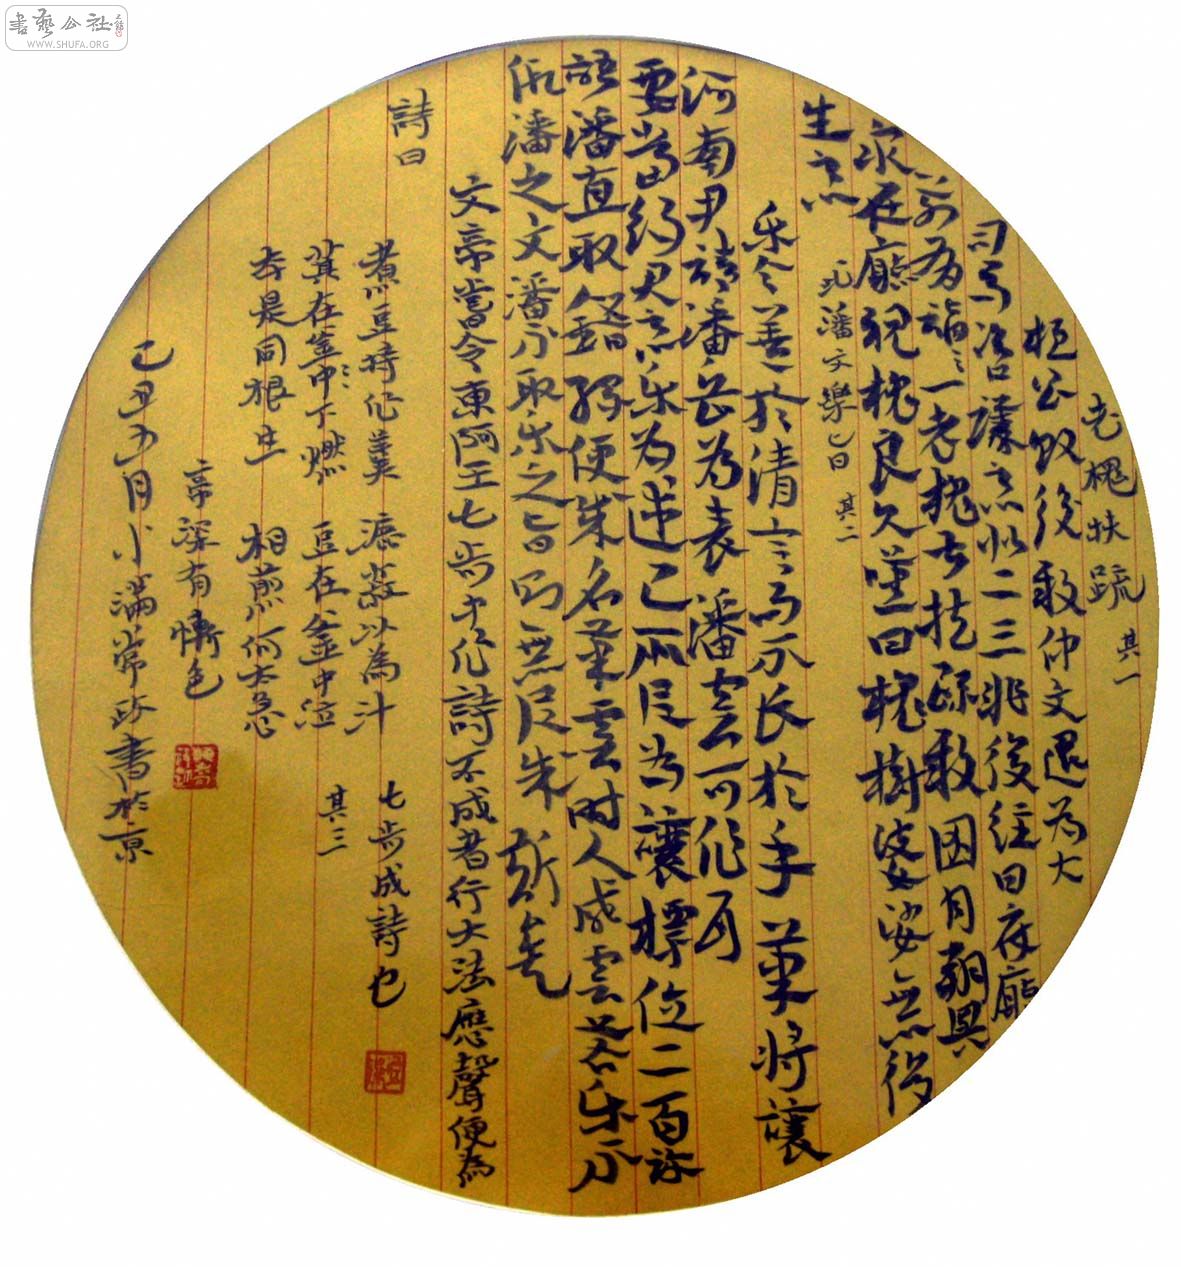 書藝公社
WWW.SHUFA.ORG
老槐扶疏 其一
桓公敗後殷仲文還為大
司馬咨議意似二三非復往日府廳
前有槐一老槐甚扶疏殷因月朔與
眾在廳視槐良久嘆曰槐樹婆娑無復
生意
潘文樂旨 其二
樂令善於清言而不長於手筆將讓
河南尹請潘岳為表潘云可作耳
要當得君意樂為述己所以為讓標位二百許
語潘直取錯綜便成名筆時人咸云若樂不
假潘之文潘不取樂之旨則無以成斯矣
文帝嘗令東阿王七步中作詩不成者行大法應聲便為
詩曰
煮豆持作羹 漉菽以為汁
萁在釜中下燃 豆在釜中泣
本是同根生 相煎何太急
帝深有慚色
七步成詩也
其三
己丑年月小滿 書於京